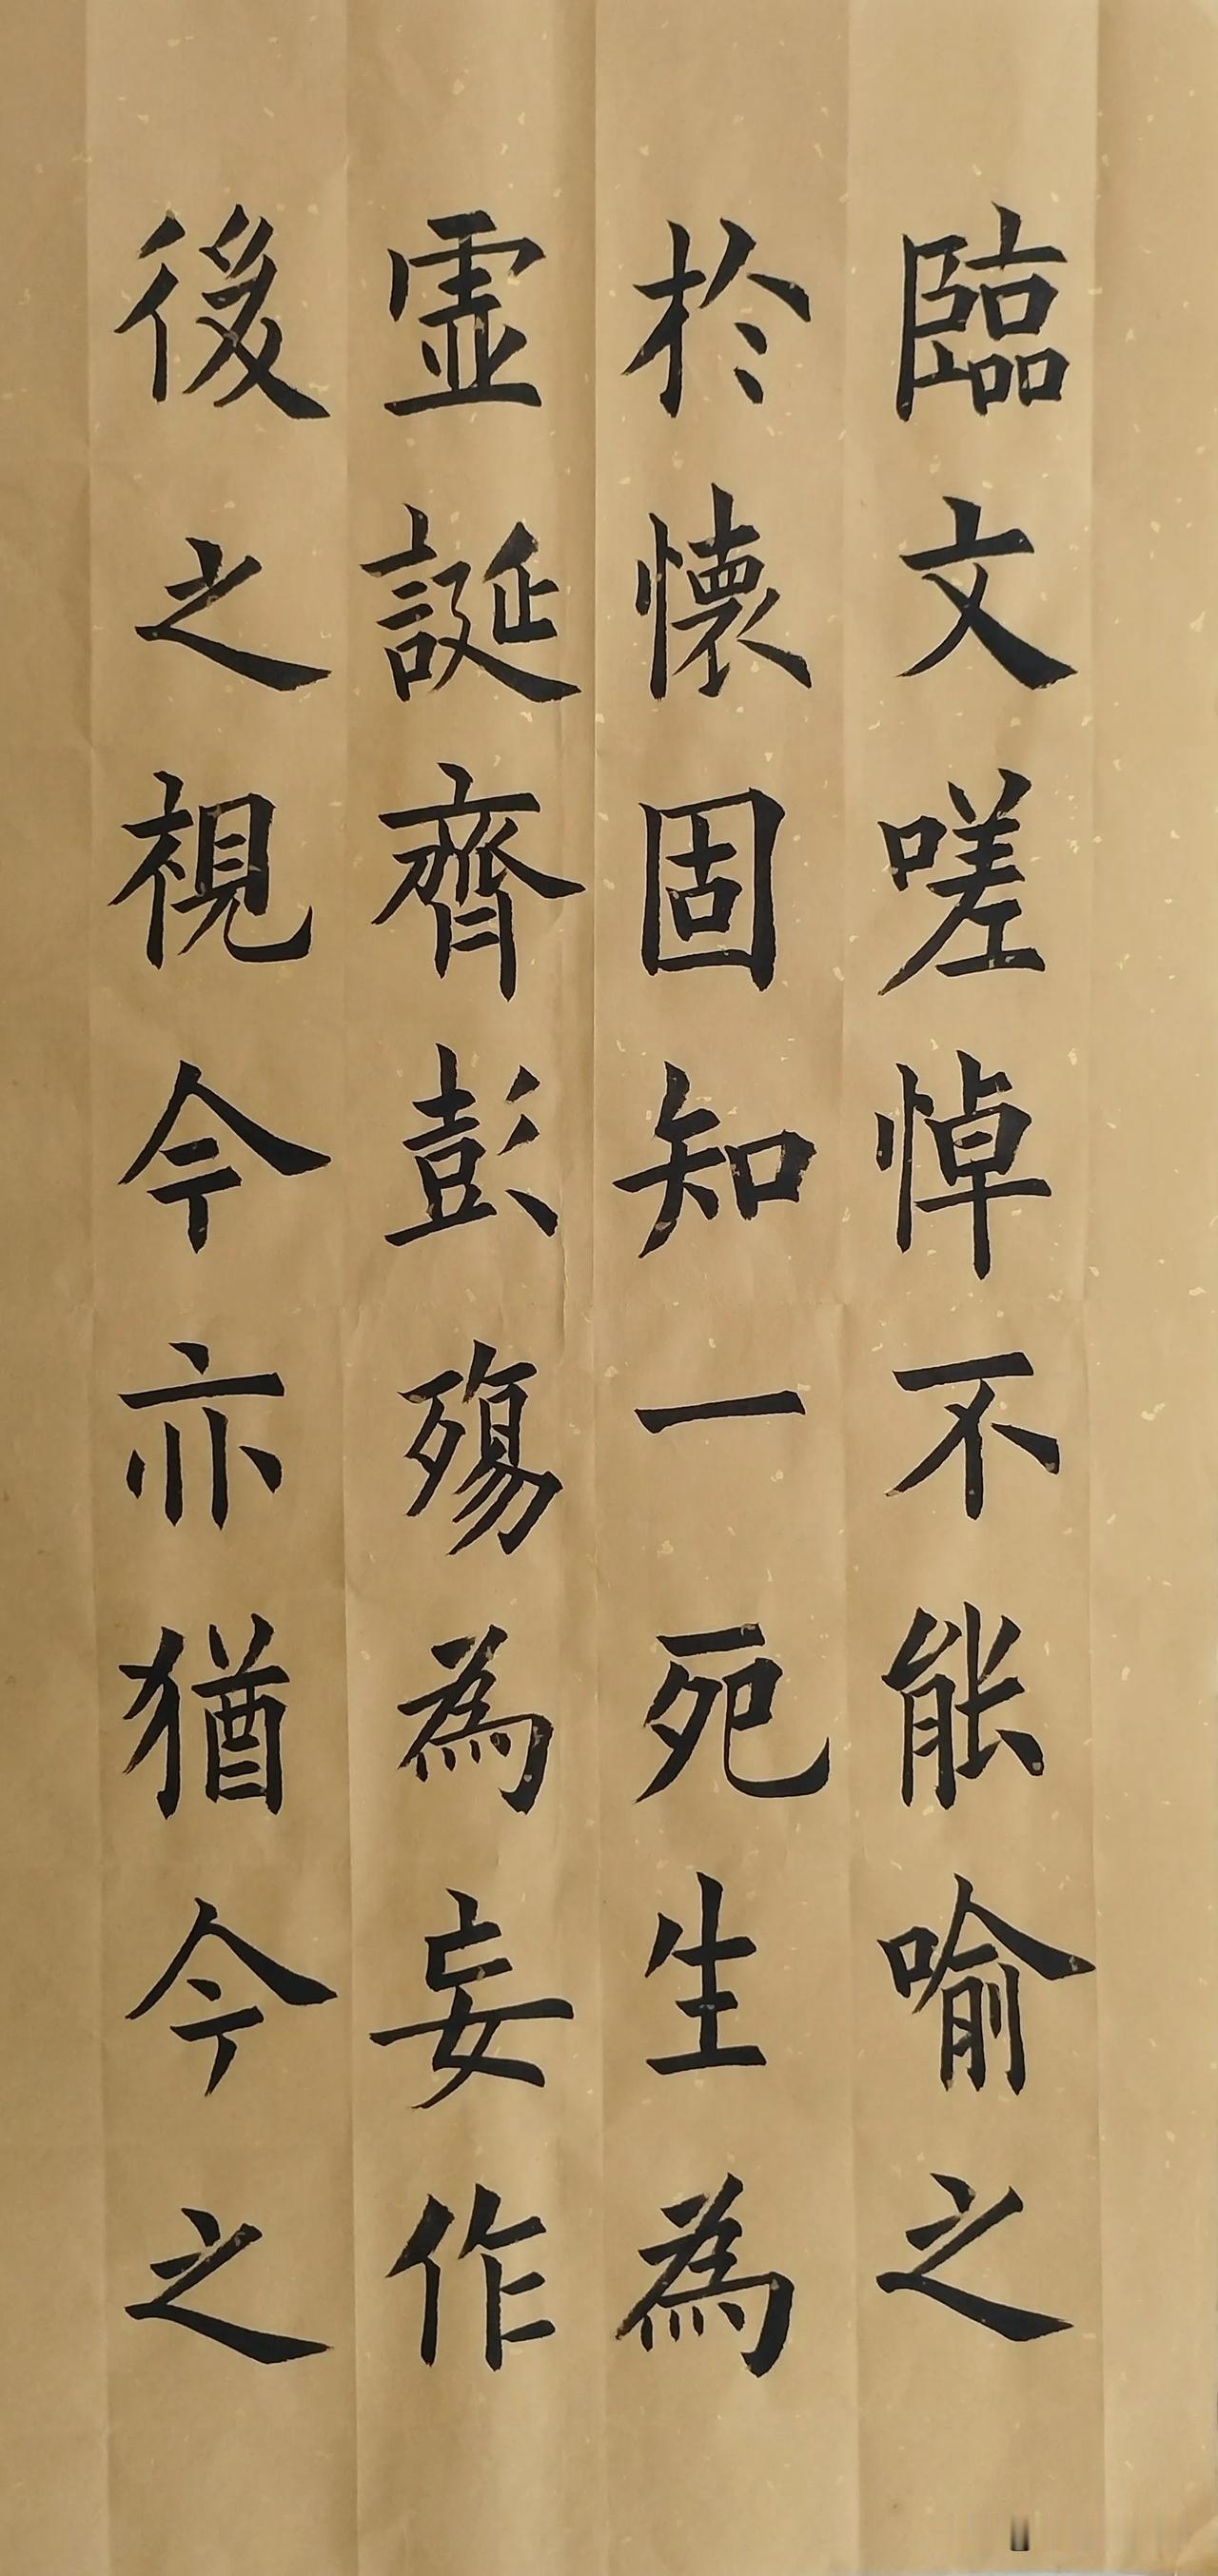 臨文嗟悼不能喻之
於懷固知一死生為
虛誕齊彭殤為妄作
後之視今亦猶今之